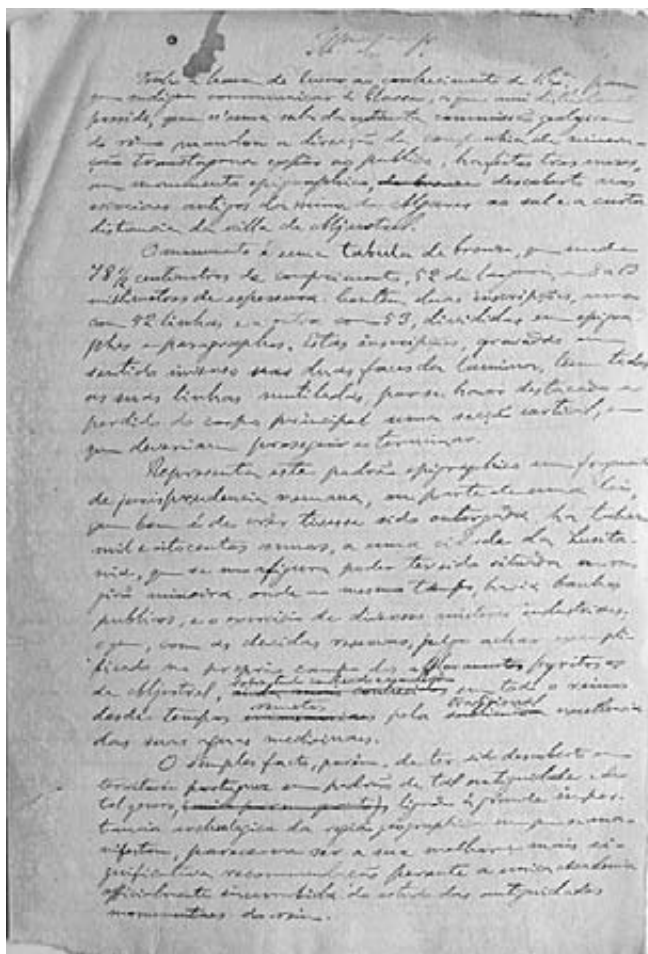 Tenho a honra de levar ao conhecimento de V. Ex.ª, para
que se digne communicar á Classe, a que mui
presido, que n'uma sala da extincta commissão geologica
do reino mandou a direcção da companhia de minera-
ção transtagana expôr ao publico, ha tres mezes,
um monumento epigraphico, de bronze descoberto nos
escoriaes antigos da mina dos Algares ao sul e a curta
distancia da villa de Aljustrel.
O monumento é uma tabula de bronze, que mede
78 1/2 centimetros de comprimento, 52 de largura, e 8 a 13
millimetros de espessura. Contém duas inscripções, uma
com 42 linhas e a outra com 53, divididas em epigra-
phes e paragraphos. Estas inscripções, gravadas em
sentido inverso nas duas faces da lamina, tem todas
as suas linhas mutiladas, por se haver destacado e
perdido do corpo principal uma secção vertical, em
que deveriam proseguir e terminar.
Representa este padrão epigraphico um fragmento
de jurisprudencia romana, ou parte de uma lei,
que bem é de crêr tivesse sido outorgada, ha talvez
mil e oitocentos annos, a uma cidade da Lusita-
nia, que se me afigura poder ter sido situada em re-
gião mineira, onde ao mesmo tempo havia banhos
publicos, e o exercicio de diversos misteres industriaes,
o que, com as devidas reservas, julgo achar exempli-
ficado no proprio campo dos afloramentos pyritosos
de Aljustrel, em todo o reino
desde tempos remotos pela tradicional excellencia
das suas aguas medicinaes.
O simples facto, porém, de ter sido descoberto em
territorio portuguez um padrão de tal antiguidade e de
tal genero, ligado á grande impor-
tancia archeologica da região geographica em que se ma-
nifestou, parece-me ser a sua melhor e mais si-
gnificativa recommendação perante a unica academia
officialmente incumbida do estudo das antiguidades
monumentaes do reino.